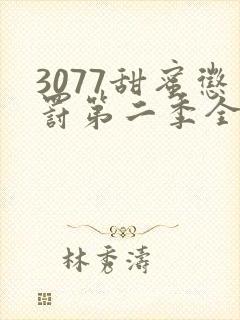 3077甜蜜懲
罚第二季全
林秀濤